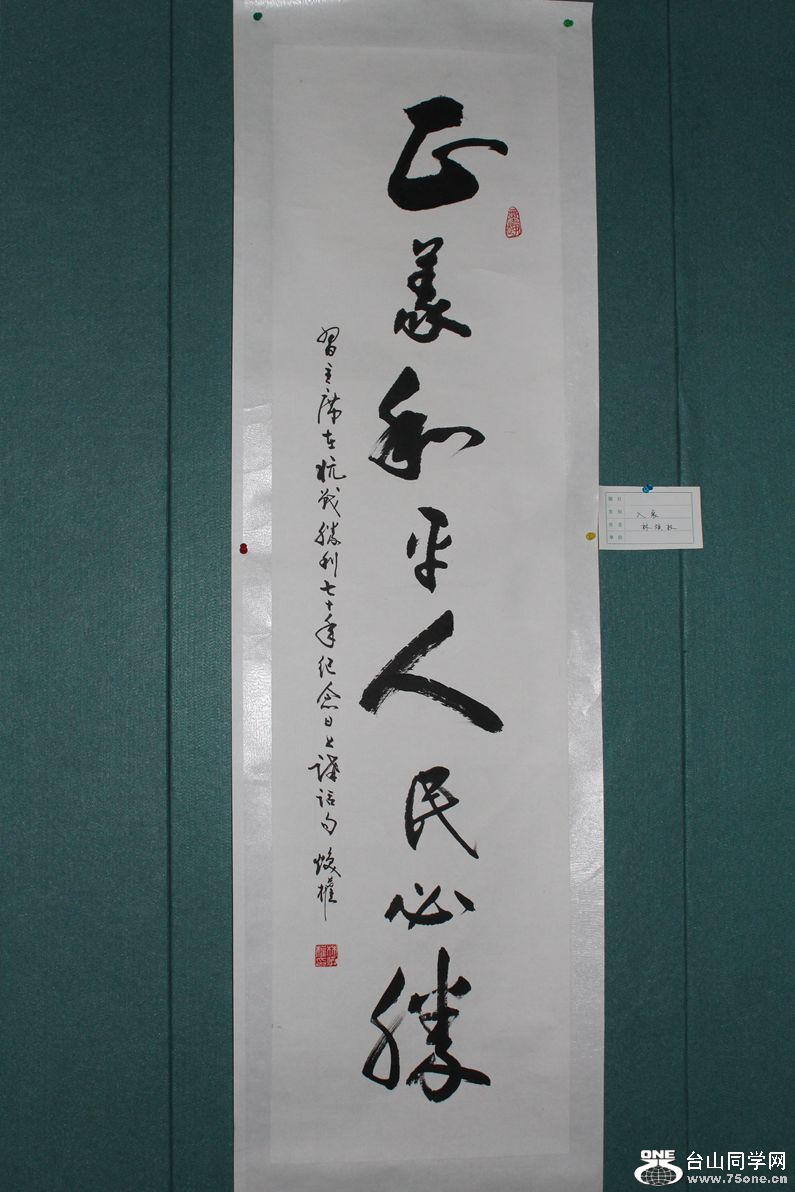 正義和平人民必勝
習主席在抗戰勝利七十年紀念日上講話句 煥權
入展
ONE
台山同学网
www.75one.cn